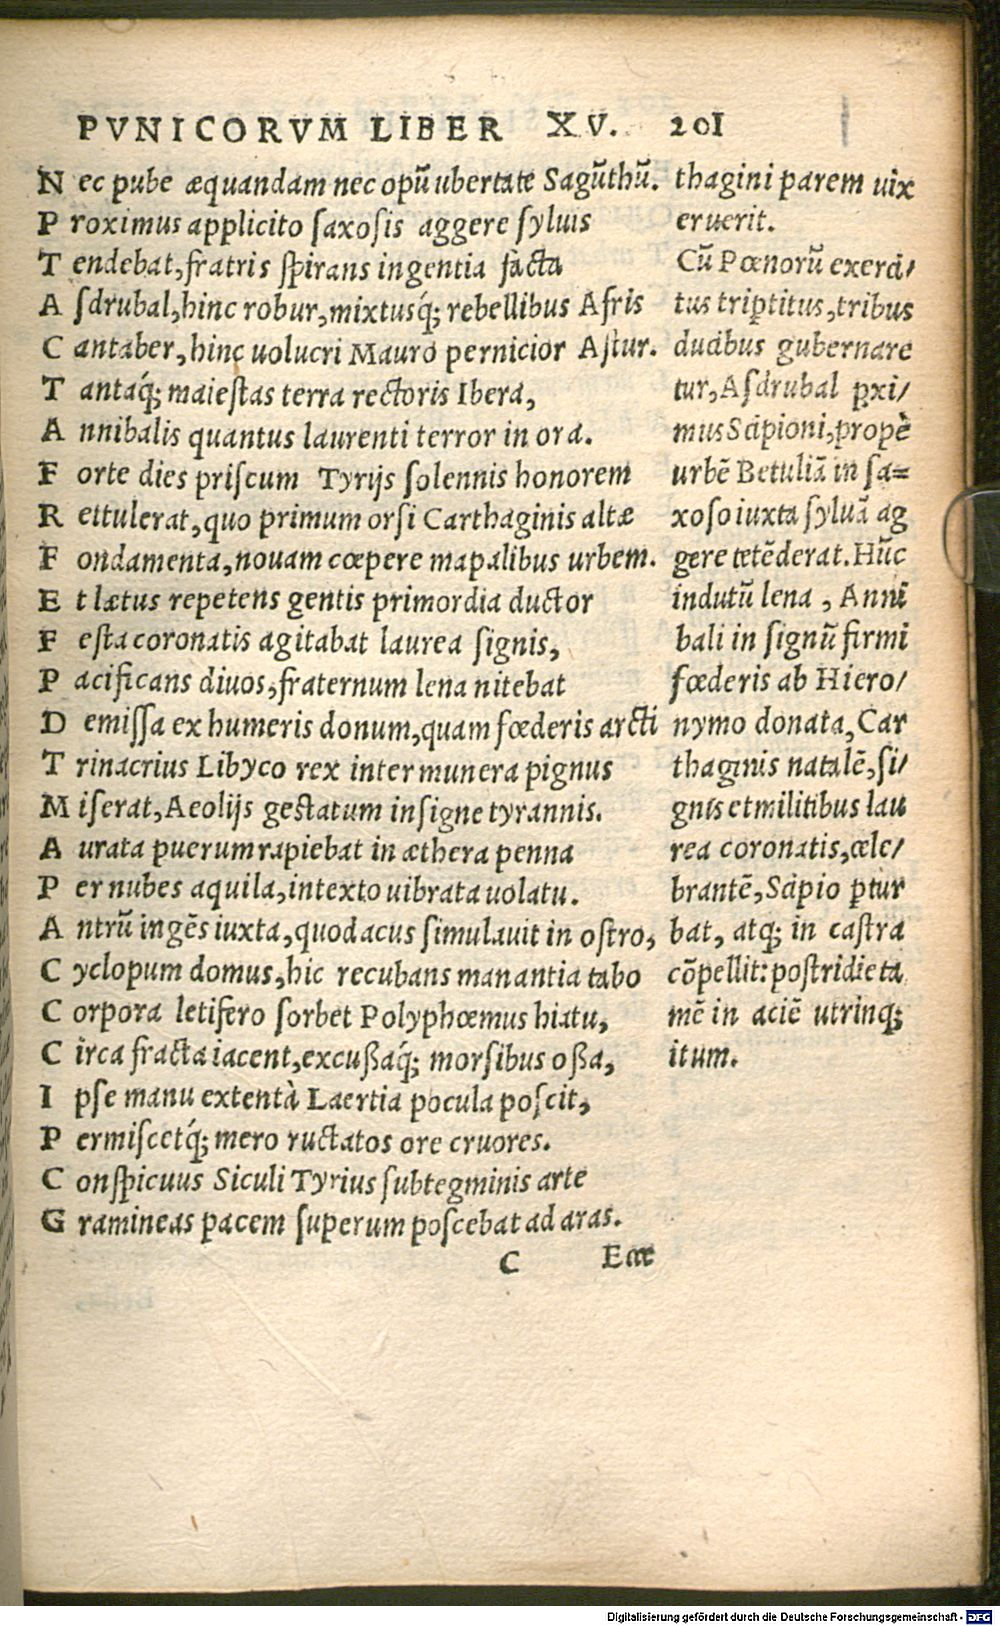 PVNICORVM LIBER XV. 201
Nec pube æquandam nec opũ ubertate Sagũthũ.
Proximus applicito saxosis aggere syluis
Tendebat, fratris spirans ingentia facta
Asdrubal, hinc robur, mixtusq́; rebellibus Afris
Cantaber, hinc uolucri Mauro pernicior Astur.
Tantaq́; maiestas terra rectoris Ibera,
Annibalis quantus laurenti terror in ora.
Forte dies priscum Tyrijs solennis honorem
Rettulerat, quo primum orsi Carthaginis altæ
Fondamenta, nouam cœpere mapalibus urbem.
Et lætus repetens gentis primordia ductor
Festa coronatis agitabat laurea signis,
Pacificans diuos, fraternum lena nitebat
Demissa ex humeris donum, quam fœderis arcti
Trinacrius Libyco rex inter munera pignus
Miserat, Aeolijs gestatum insigne tyrannis.
Aurata puerum rapiebat in æthera penna
Per nubes aquila, intexto uibrata uolatu.
Antrũ ingẽs iuxta, quod acus simulauit in ostro,
Cyclopum domus, hic recubans manantia tabo
Corpora letifero sorbet Polyphœmus hiatu,
Circa fracta iacent, excußaq́; morsibus oßa,
Ipse manu extentà Laertia pocula poscit,
Permiscetq́; mero ructatos ore cruores.
Conspicuus Siculi Tyrius subtegminis arte
Gramineas pacem superum poscebat ad aras.
C Ecce
thagini parem uix
eruerit.
Cũ Pœnorũ exerci/
tus triptitus, tribus
ducibus gubernare
tur, Asdrubal ꝓxi/
mus Scipioni, propè
urbẽ Betuliã in sa=
xoso iuxta syluã ag
gere tetẽderat. Hũc
indutũ lena, Anni
bali in signũ firmi
fœderis ab Hiero/
nymo donata, Car
thaginis natalẽ, si/
gnis et militibus lau
rea coronatis, cele/
brantẽ, Scipio ꝑtur
bat, atq; in castra
cõpellit: postridie ta
mẽ in aciẽ utrinq;
itum.
Digitalisierung gefördert durch die Deutsche Forschungsgemeinschaft - DFG